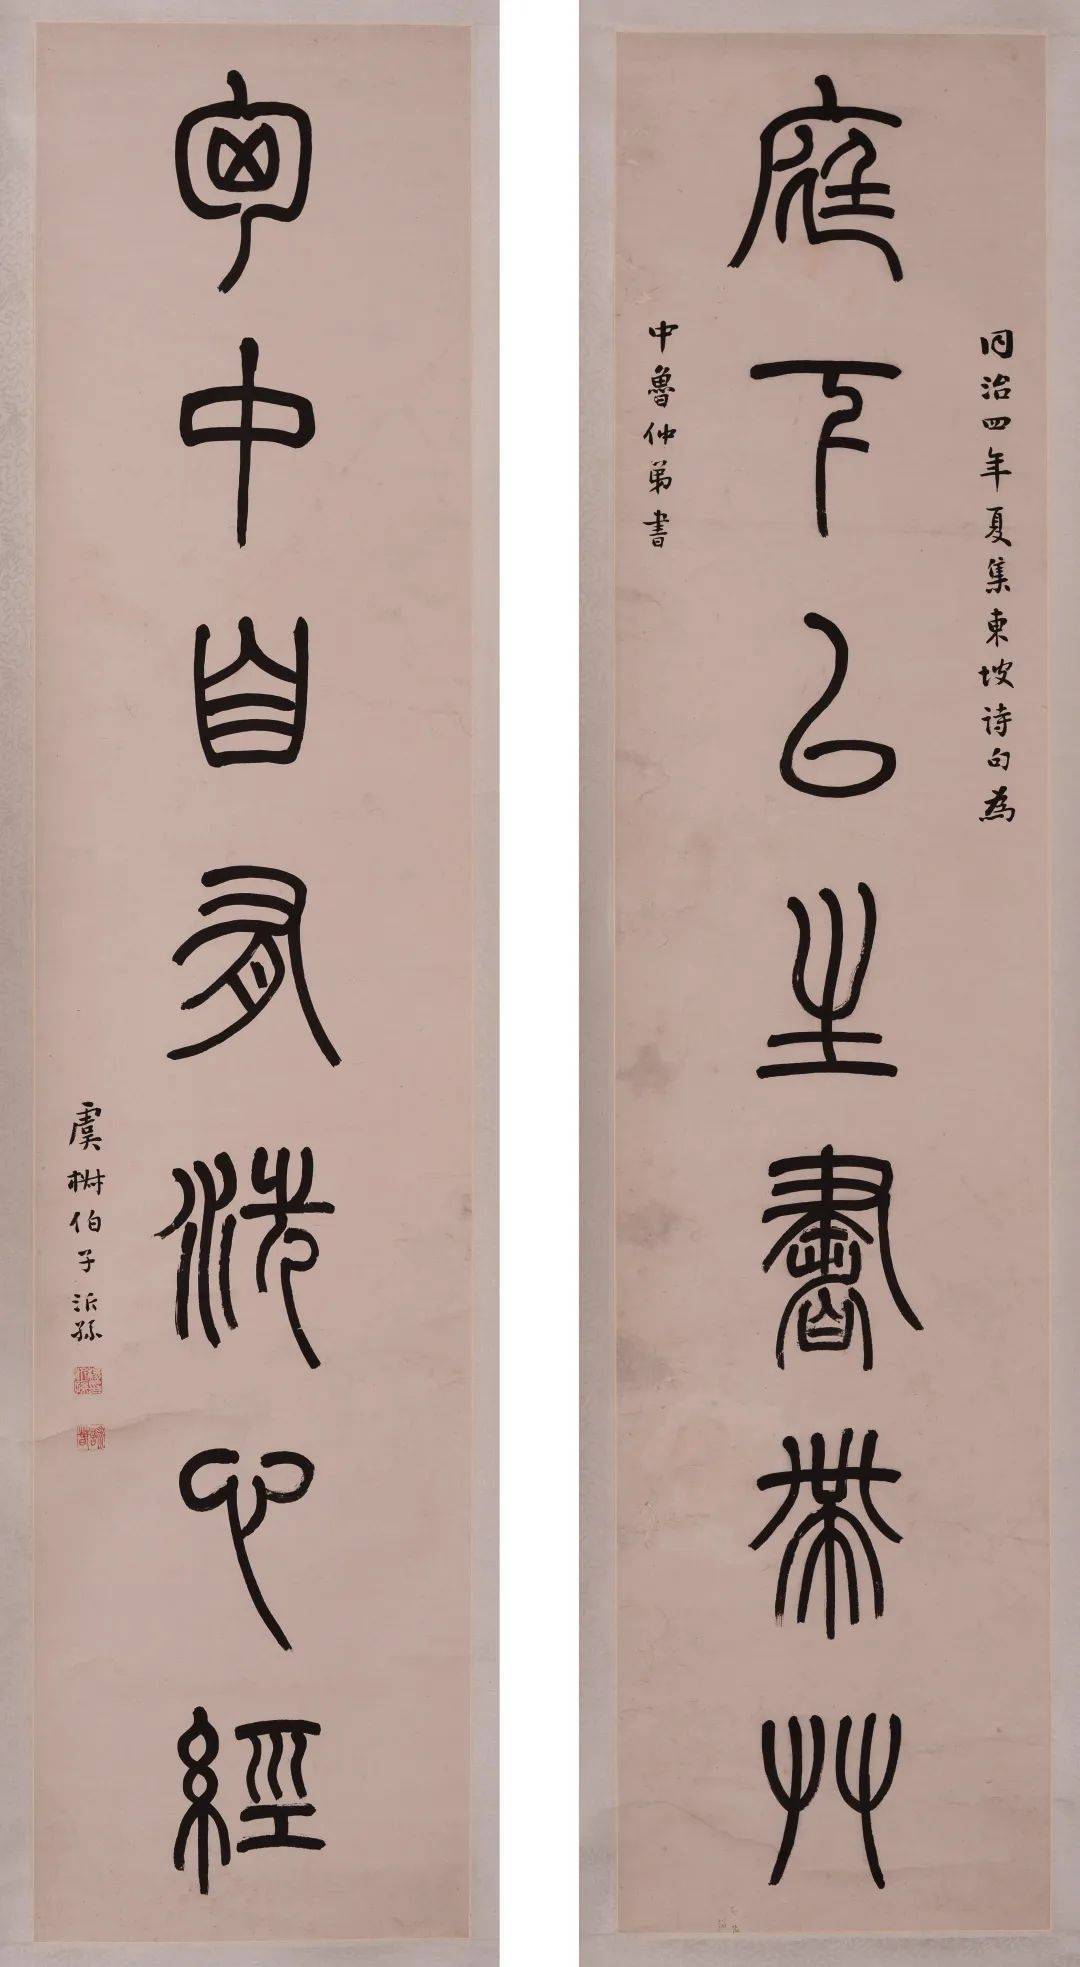 同治四年夏集東坡詩句為
庭下已生書帶艸
中魯仲弟書
匈中自有洗心經
虞伯子沂孫